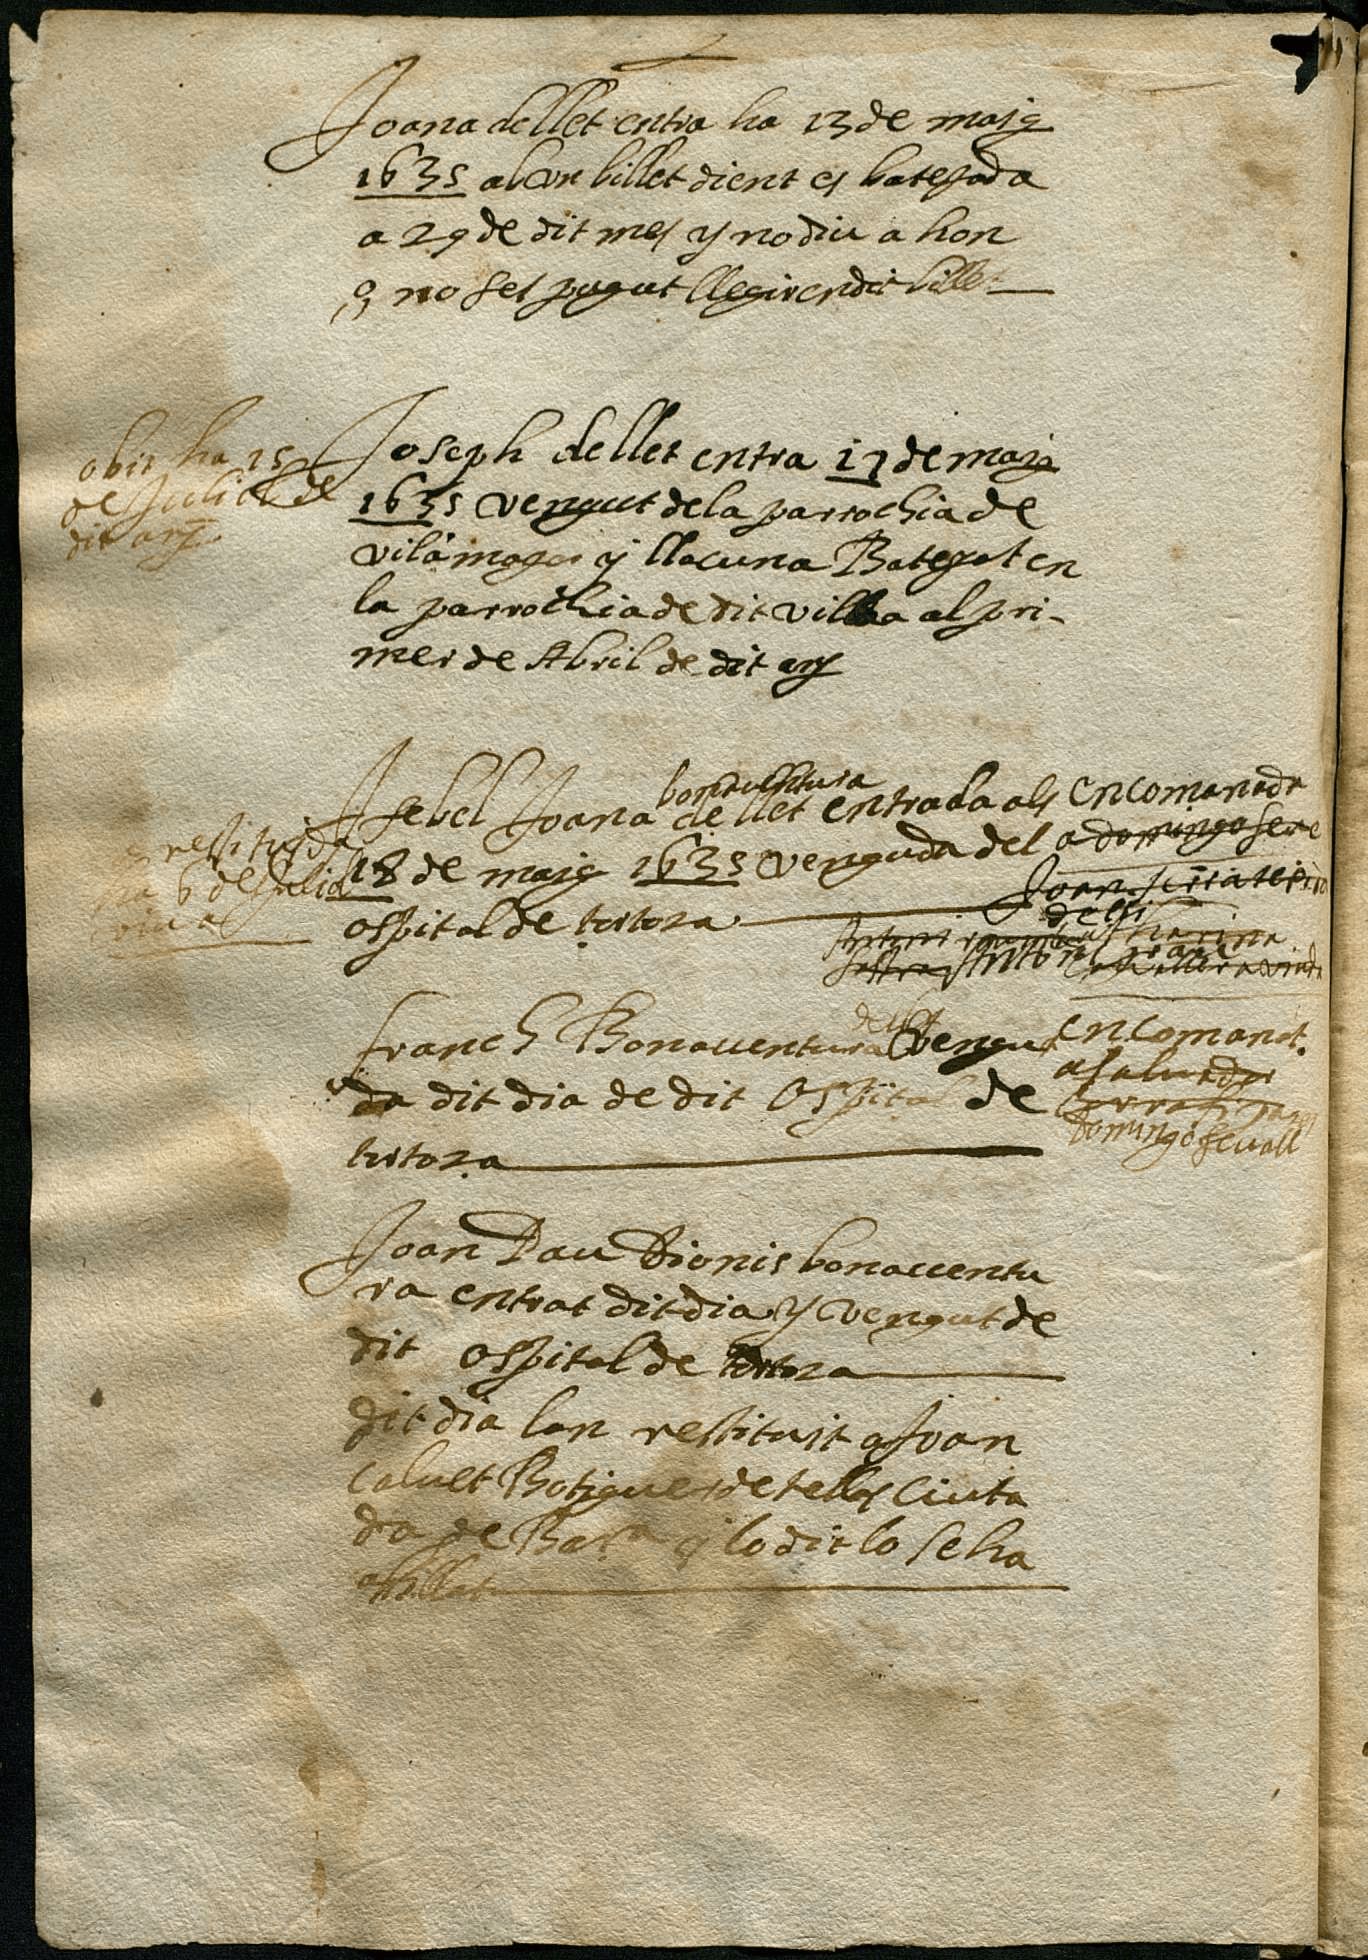 Joana de llet entra ha 13 de maig
1635 ab un billet dient es batejada
a 29 de dit mes y no diu a hon
q no set pugut llegir en dit billet
obit ha 15
de Juliol de
dit any
Joseph de llet entra 17 de maig
1635 vengut de la parrochia de
vilamajor y llacuna Batejat en
la parrochia de dit villa al pri-
mer de Abril de dit any
restituida
ha 6 de Juliol
bonaventura
Isebel Joana de llet entrada als
18 de maig 1635 venguda del
ospital de tortoza
encomanada
a domingo
Joan
Antoni
Franch Bonaventura vengu
da dit dia de dit Ospital de
tortoza
encomanat
a saluador
domingo
Joan Pau Dionis bonauentu
ra entrat dit dia y vengut de
dit ospital de tortoza
dit dia lan restituit a Joan
caluet Botiguer de telles Ciuta
da de Bar.na y lo dit lo se ha
afillat